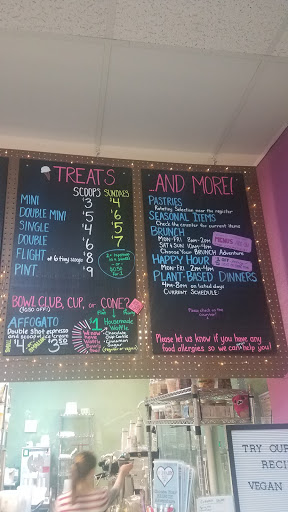 TREATS
SCOOPS SUNDAES
MINI $3 $4
DOUBLE MINI $5 $6
SINGLE $4 $5
DOUBLE $6 $7
FLIGHT of 6 tiny scoops $8
PINT $9
BOWL CLUB, CUP, or CONE?
AFFOGATO
Double Shot espresso
$4
$1
Housemade
Waffle
AND MORE!
PASTRIES
Rotating Selection near the register
SEASONAL ITEMS
Check the counter for current items
BRUNCH
MON-FRI 8am-2pm
SAT & SUN 10am-4pm
Choose Your BRUNCH Adventure
HAPPY HOUR
MON-FRI 2pm-4pm
PLANT-BASED DINNERS
4pm-8pm on listed days
CURRENT SCHEDULE:
Please let us know if you have any
food allergies so we can help you!
TRY OUR
RECI
VEGAN